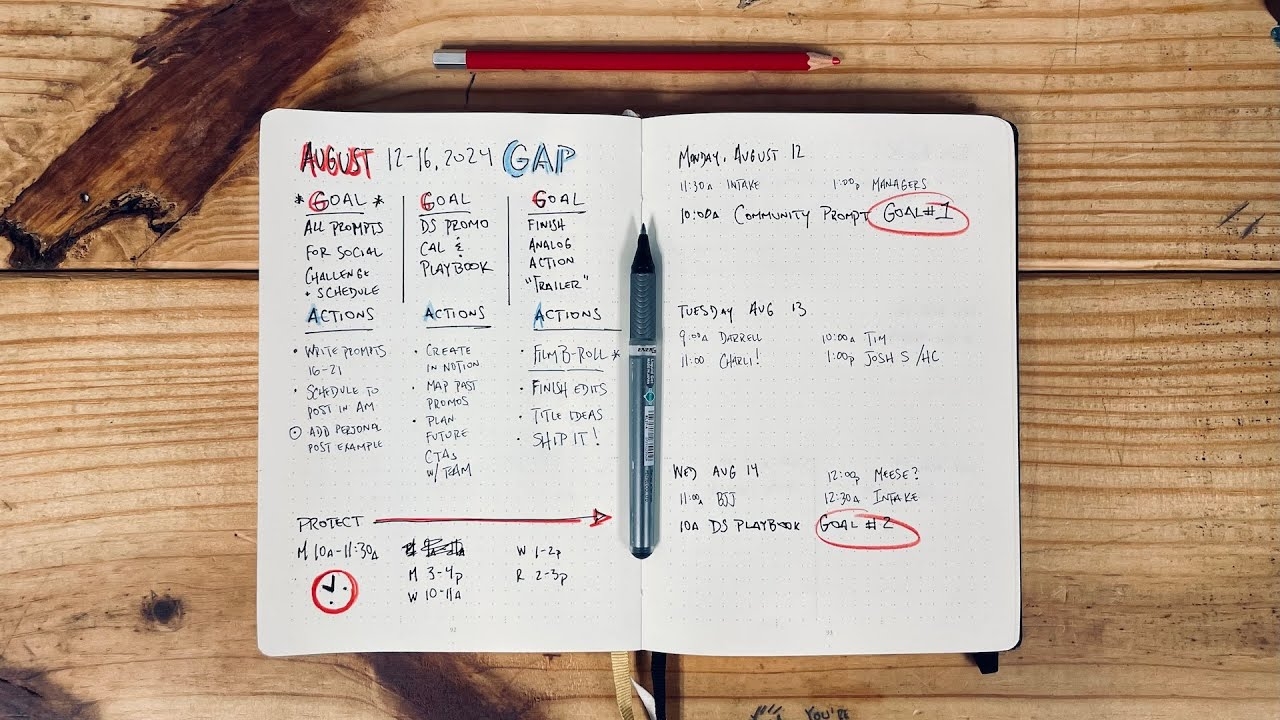 AUGUST 12-16, 2024 GAP
* GOAL *
ALL PROMPTS
FOR SOCIAL
CHALLENGE
• SCHEDULE
ACTIONS
• WRITE PROMPTS
16-21
• SCHEDULE TO
POST IN AM
ADD PERSONAL
POST EXAMPLE
GOAL
DS PROMO
CAL &
PLAYBOOK
ACTIONS
• CREATE
IN NOTION
• MAP PAST
PROMOS
• PLAN
FUTURE
CTAS
W/ TEAM
GOAL
FINISH
ANALOG
ACTION
"TRAILER"
ACTIONS
• FILM B-ROLL *
• FINISH EDITS
• TITLE IDEAS
• SHIP IT!
PROTECT
M 10A-11:30A
M 3-4p
W 10-11A
W 1-2p
R 2-3p
92
MONDAY, AUGUST 12
11:30A INTAKE 1:00p MANAGERS
10:00A COMMUNITY PROMPT GOAL #1
TUESDAY AUG 13
9:00A DARRELL 10:00A TIM
11:00 CHARLI! 1:00p JOSH S /HC
WED AUG 14 12:00p MEESE?
11:00A BJJ 12:30A INTAKE
10A DS PLAYBOOK GOAL #2
93
YOU'RE